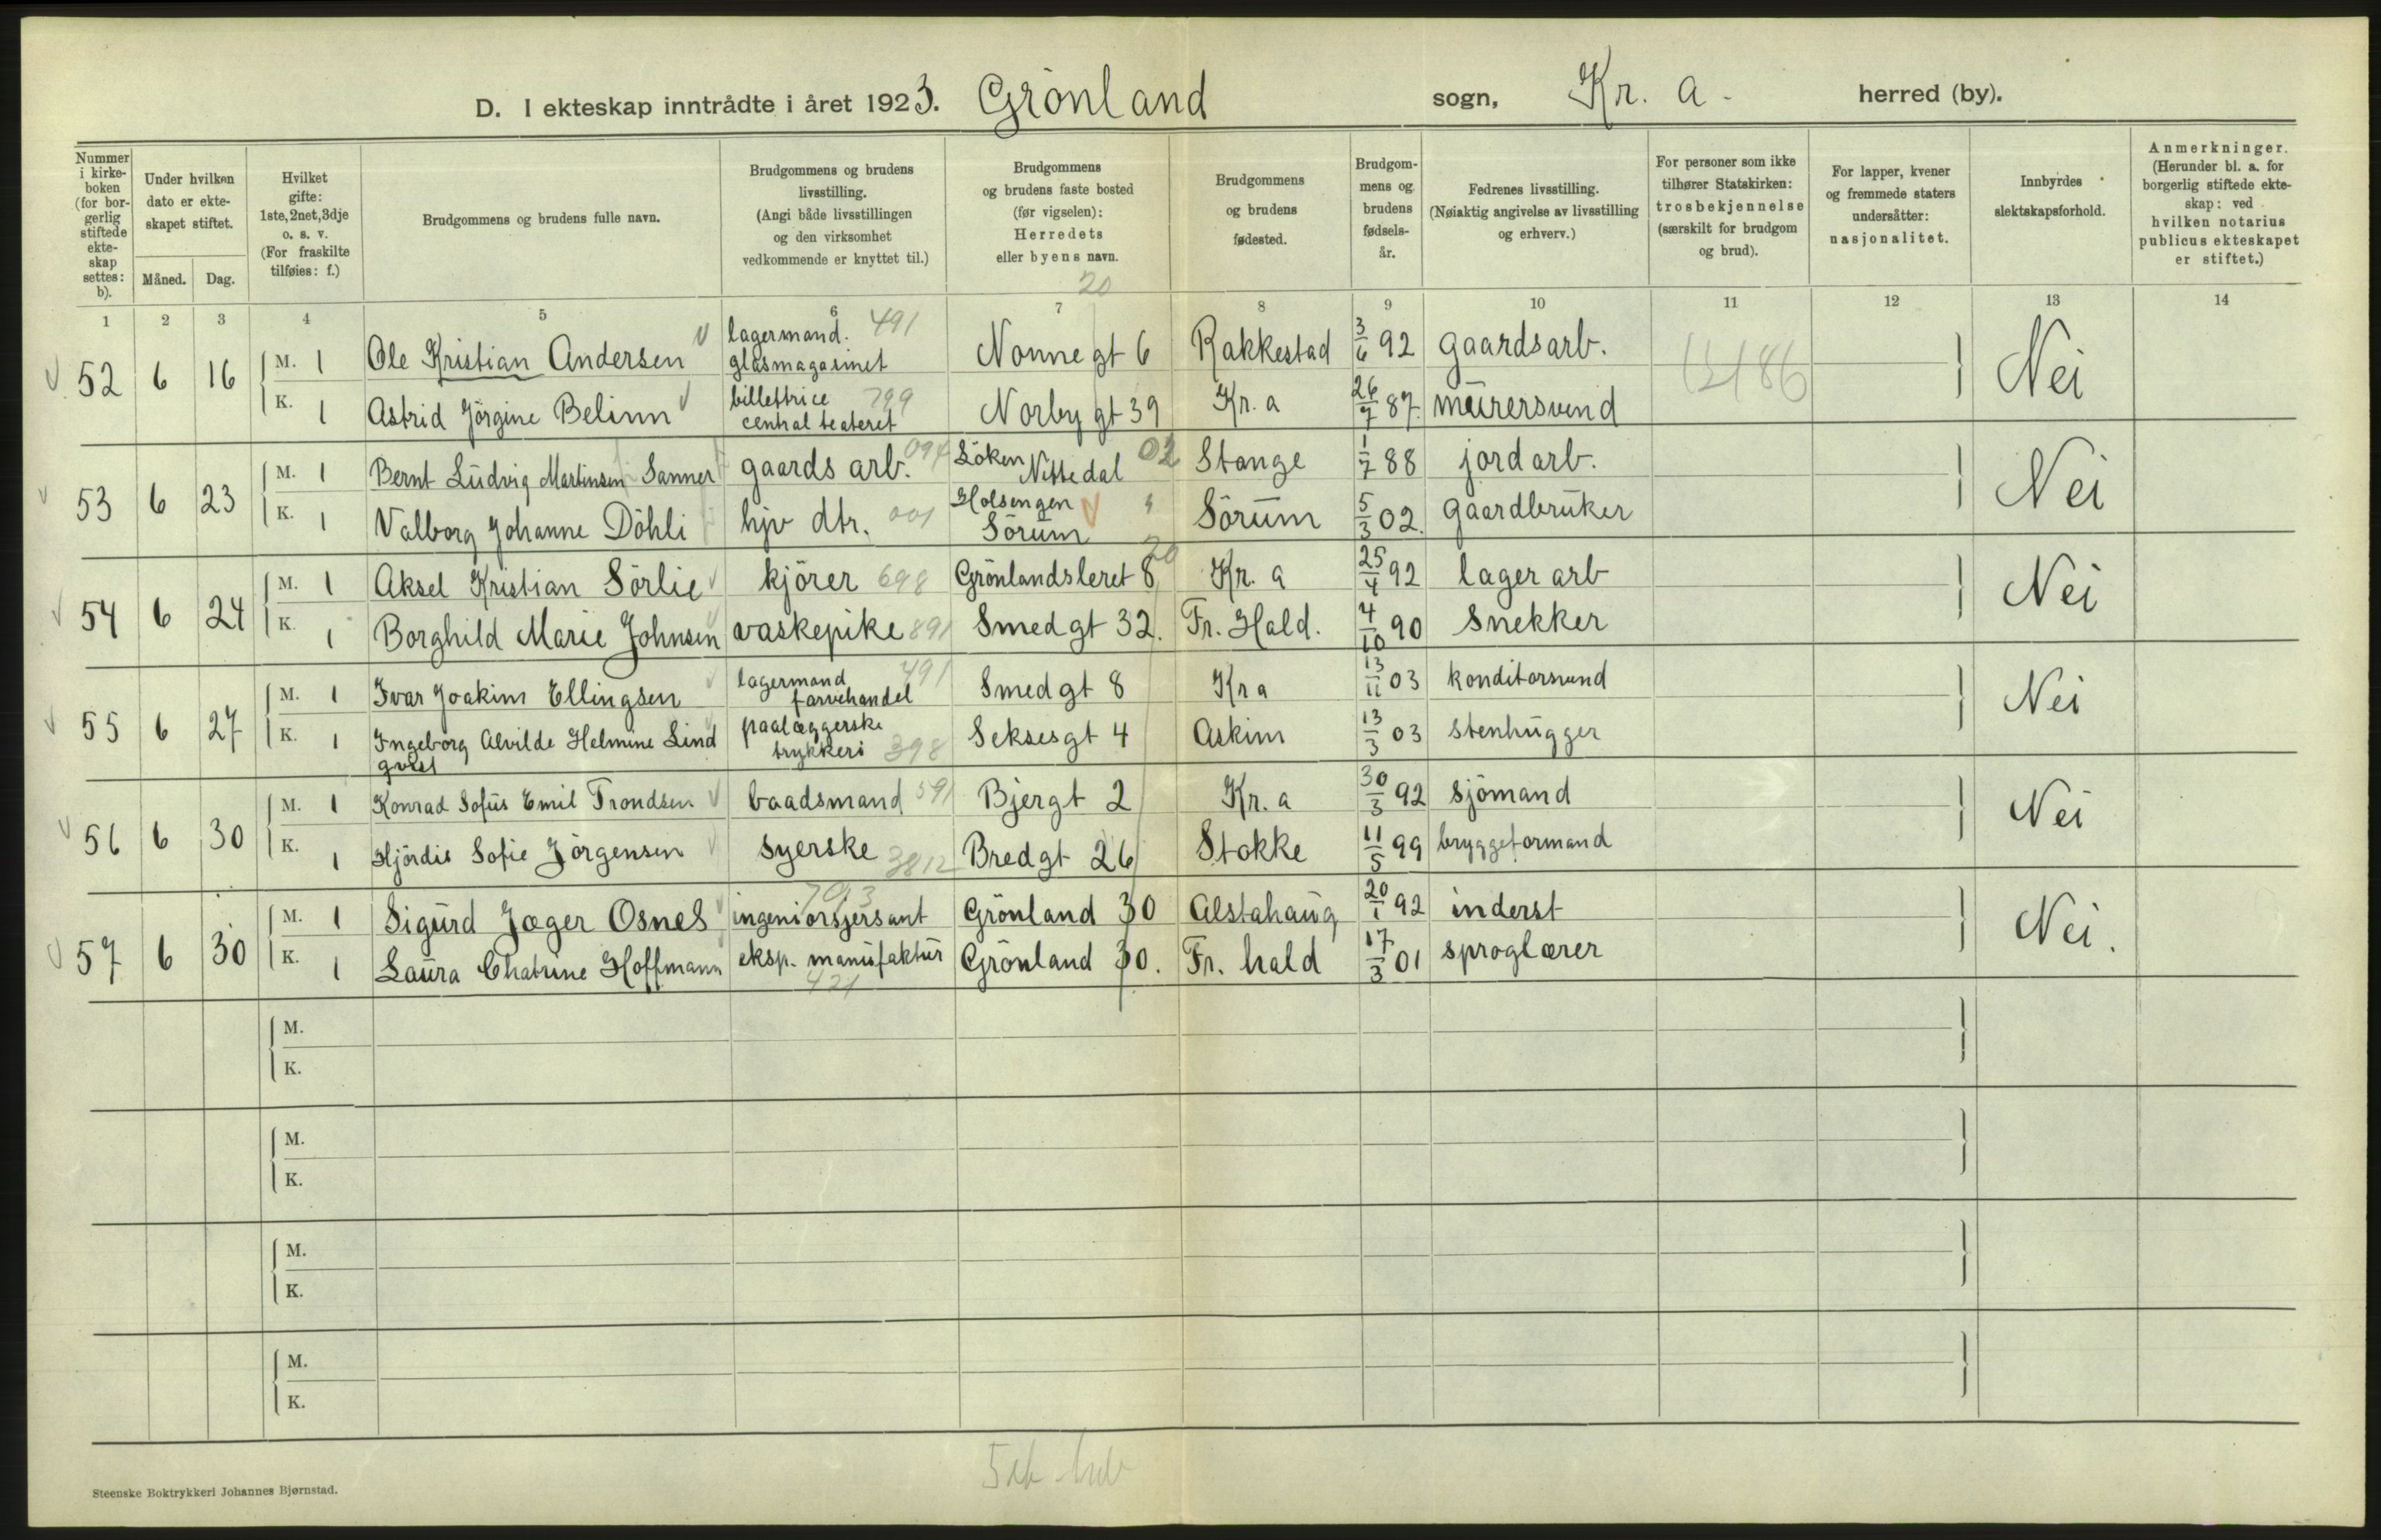 D. I ekteskap inntrådte i året 1923. Grönland sogn, Kr. a. herred (by).
Nummer i kirke-boken (for bor-gerlig stiftede ekte-skap settes: b).
Under hvilken dato er ekte-skapet stiftet.
Måned. Dag.
Hvilket gifte: 1ste, 2net, 3dje o. s. v. (For fraskilte tilføies: f.)
Brudgommens og brudens fulle navn.
Brudgommens og brudens livsstilling. (Angi både livsstillingen og den virksomhet vedkommende er knyttet til.)
Brudgommens og brudens faste bosted (før vigselen): Herredets eller byens navn.
Brudgommens og brudens fødested.
Brudgom-mens og brudens fødsels-år.
Fedrenes livsstilling. (Nøiaktig angivelse av livsstilling og erhverv.)
For personer som ikke tilhører Statskirken: trosbekjennelse (særskilt for brudgom og brud).
For lapper, kvener og fremmede staters undersåtter: nasjonalitet.
Innbyrdes slektskapsforhold.
Anmerkninger. (Herunder bl. a. for borgerlig stiftede ekte-skap: ved hvilken notarius publicus ekteskapet er stiftet.)
20
1 2 3 4 5 6 7 8 9 10 11 12 13 14
52 6 16 M. 1 Ole Kristian Andersen lagermand. glasmagasinet 491 Nonnegt 6 Rakkestad 3/6 92 gaardsarb. Nei
K. 1 Astrid Jörgine Belinn billettrice central teateret 799 Norbygt 39 Kr. a 26/7 87. murersvend
53 6 23 M. 1 Bernt Ludvig Martinsen Sanner gaards arb. 091 Löken Nittedal 02 Stange 1/7 88 jordarb. Nei
K. 1 Valborg Johanne Döhli hjv dtr. 001 Holsengen Sörum " Sörum 5/3 02. gaardbruker
54 6 24 M. 1 Aksel Kristian Sörlie kjörer 698 Grönlandsleret 8 20 Kr. a 25/4 92 lager arb Nei
K. 1 Borghild Marie Johnsen vaskepike 891 Smedgt 32. Fr. Hald. 4/10 90 Snekker
55 6 27 M. 1 Ivar Joakim Ellingsen lagermand farvehandel 491 Smedgt 8 Kr a 13/11 03 konditorsvend Nei
K. 1 Ingeborg Alvilde Helmine Lind qvist paalæggerske trykkeri 398 Seksesgt 4 Askim 13/3 03 stenhugger
56 6 30 M. 1 Konrad Sofus Emil Trondsen baadsmand 591 Bjergt 2 Kr. a 30/3 92 sjömand Nei
K. 1 Hjördis Sofie Jörgensen syerske 3812 Bredgt 26 Stokke 11/5 99 bryggeformand
57 6 30 M. 1 Sigurd Jæger Osnes ingeniörsjersant Grönland 30 Alstahaug 20/1 92 inderst Nei.
K. 1 Laura Chatrine Hoffmann eksp. manufaktur 421 Grönland 30. Fr. hald 17/3 01 sproglærer
M.
K.
M.
K.
M.
K.
M.
K.
Steenske Boktrykkeri Johannes Bjørnstad.